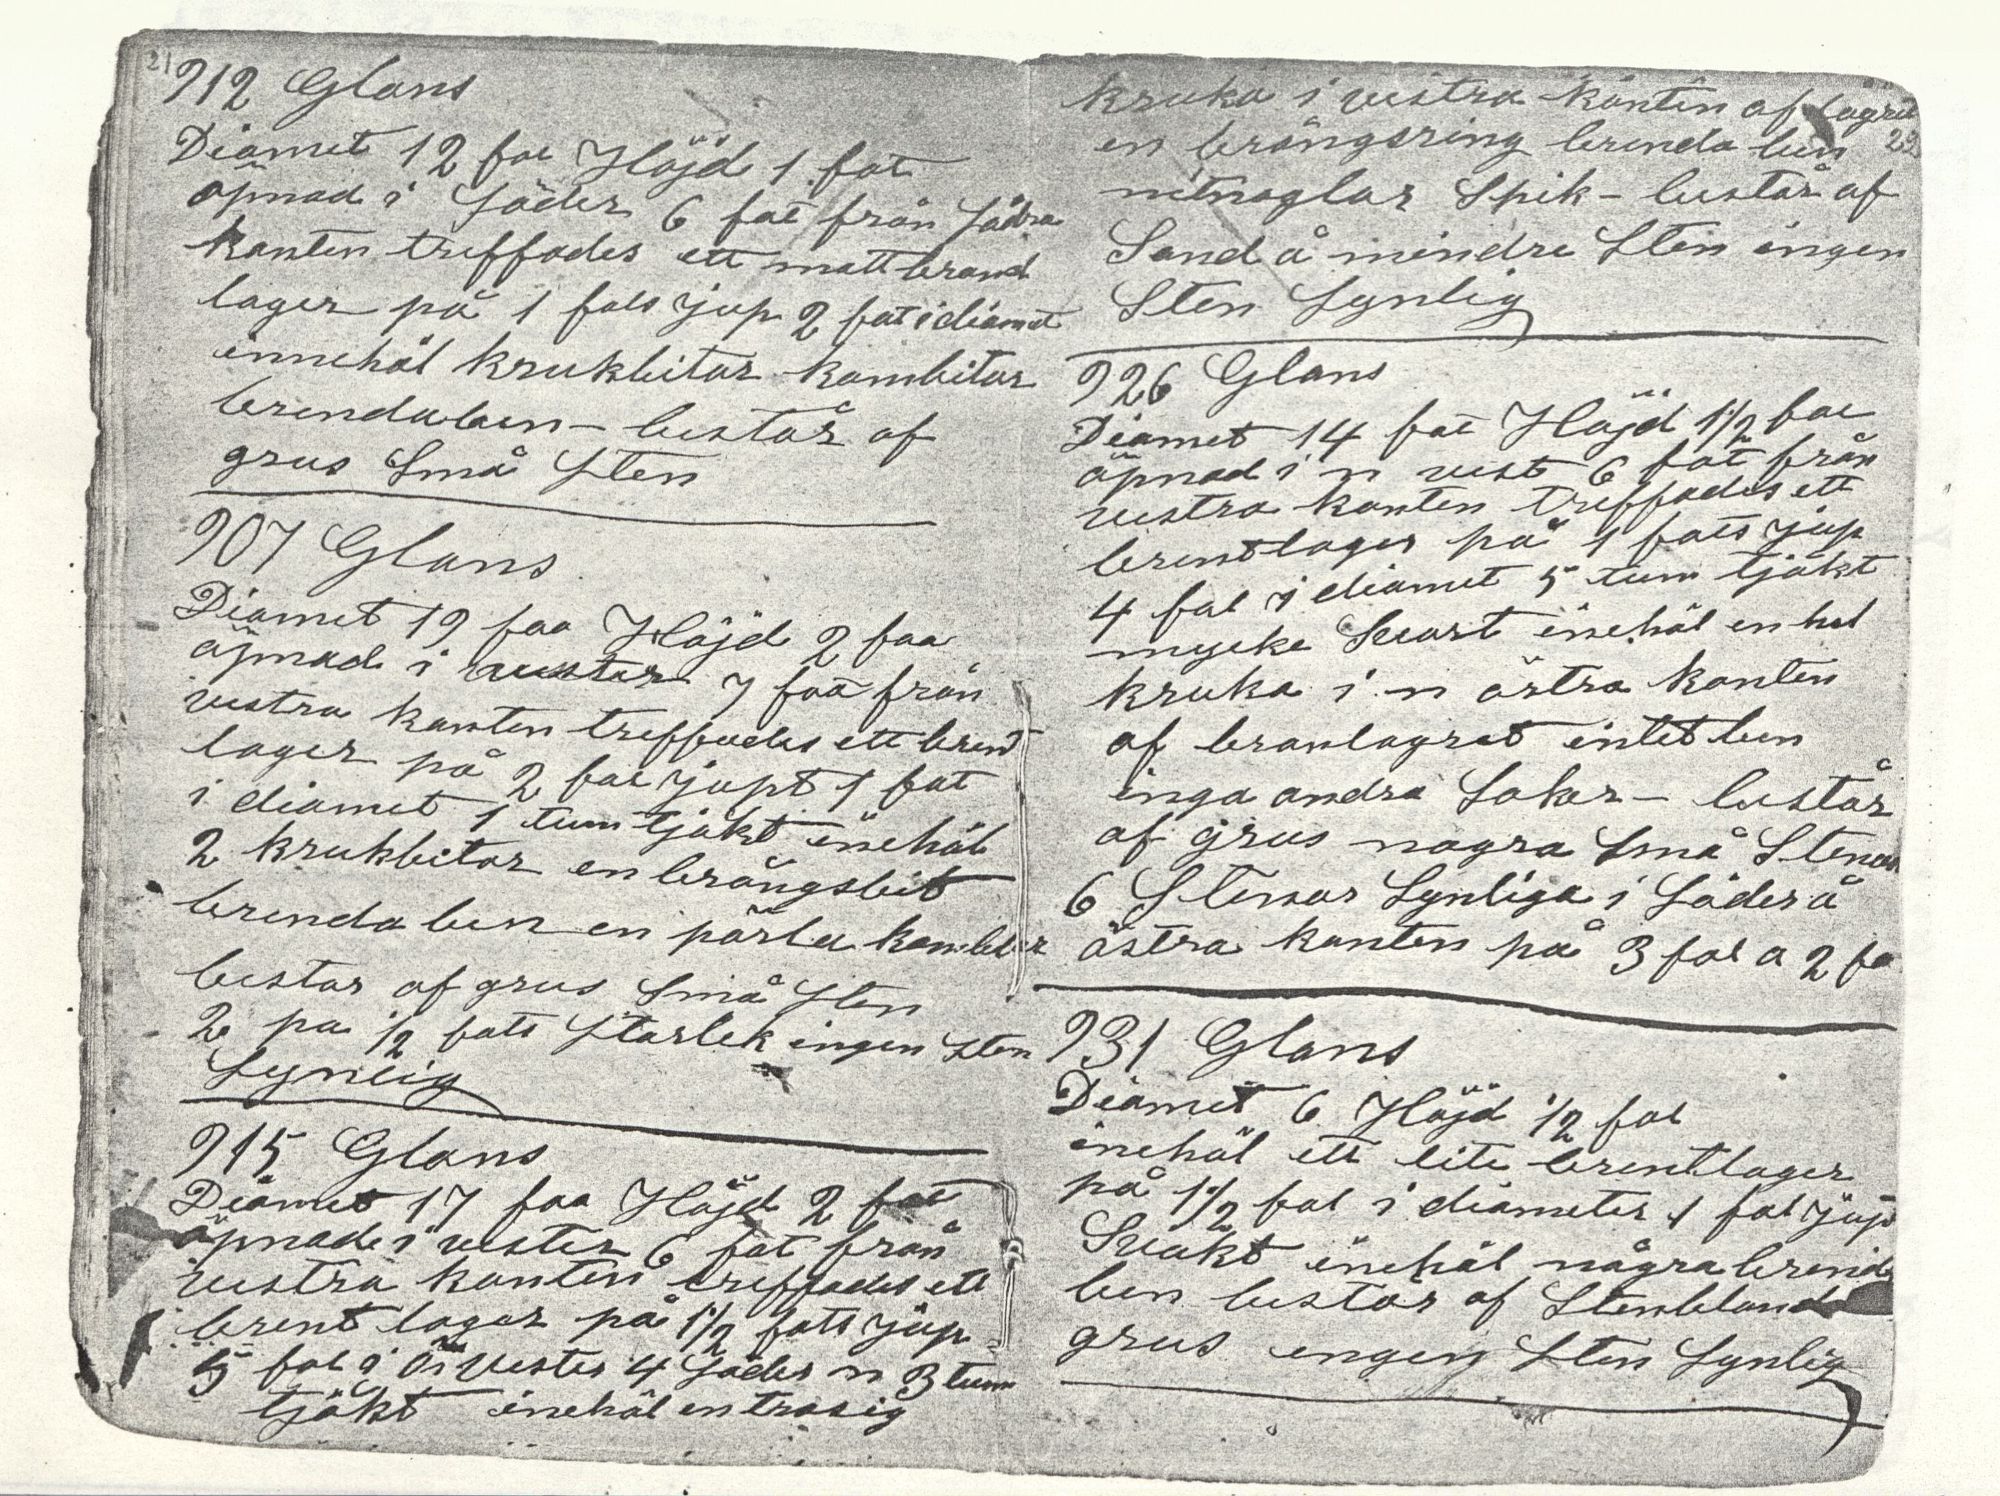 21
912 Glans
Diamet 12 fot Höjd 1 fot
öpnad i Söder 6 fot från Södra
kanten treffades ett matt brand
lager på 1 fots jup 2 fot i diamet
innehöl krukbitar kambitar
brendaben – består af
grus Små Sten
907 Glans
Diamet 19 fot Höjd 2 fot
öpnad i vester 7 fot från
vestra kanten treffades ett brent
lager på 2 fot jupt 1 fot
i diamet 1 tum tjökt inehöl
2 krukbitar en brångsbit
brenda ben en pärla kambitar
bestar af grus Små Sten
2 pa 1/2 fots Storlek ingen Sten
Synlig
915 Glans
Diamet 17 fot Höjd 2 fot
öpnad i vester 6 fot från
vestra kanten treffades ett
brent lager på 1 1/2 fots jup
5 fot i ö vester 4 Söder n 3 tum
tjökt inehöl en trasig
kruka i vestra kanten af lagret
23
en brångsring brenda ben
nitnaglar Spik – består af
Sand å mindre Sten ingen
Sten Synlig
926 Glans
Diamet 14 fot Höjd 1 1/2 fot
öpnad i n vest 6 fot från
vestra kanten treffades ett
brentlager på 1 fots jup
4 fot i diamet 5 tum tjökt
mycke Svart inehöl en hel
kruka i n östra kanten
af branlagret intet ben
inga andra Saker – består
af grus nagra Små Stenar
6 Stenar Synliga i Söder å
östra kanten på 3 fot a 2 fo
931 Glans
Diamet 6 Höjd 1/2 fot
inehöl ett lite brentlager
på 1 1/2 fot i diameter 1 fot jup
Svakt inehöl några brend
ben bestar af Stenbland
grus engen Sten Synlig